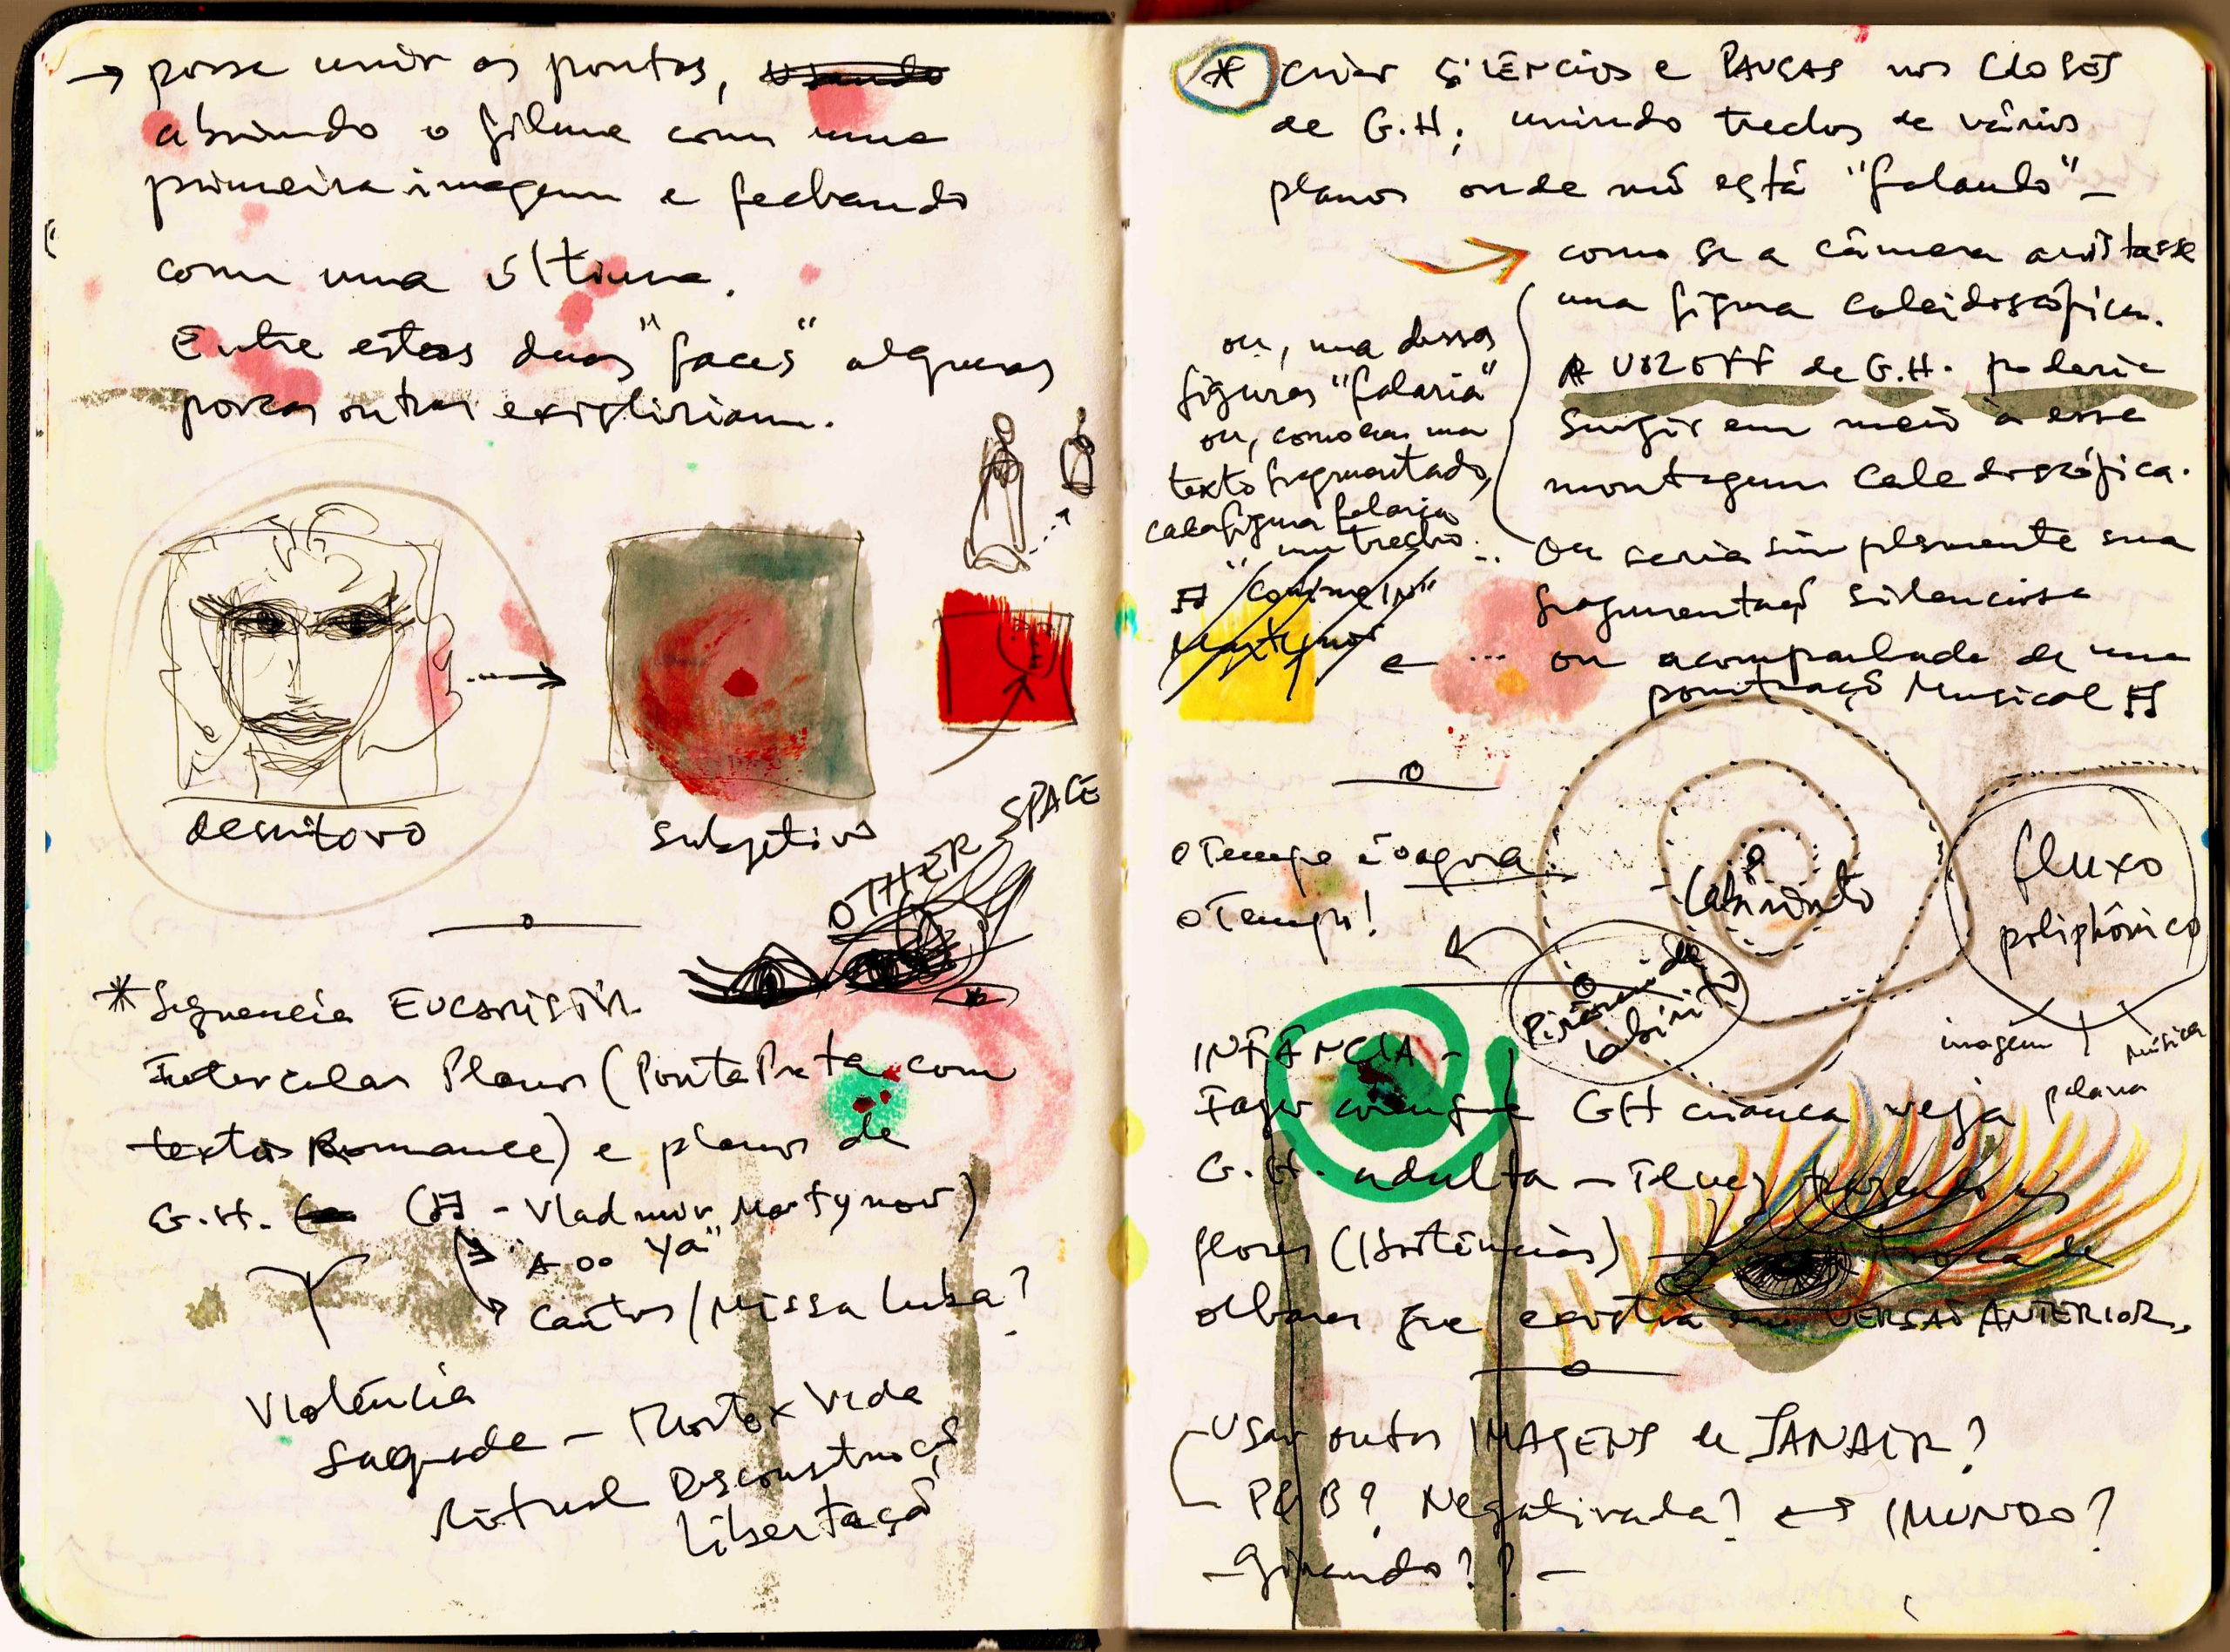 → posse unir os pontos, usando
abrindo o filme com uma
primeira imagem e fechando
com uma última.
Entre estas duas "faces" algumas
poucas outras existiriam.
demitovo
subjetivo
OTHER SPACE
* Sequencia EUCARISTIA
Intercalar Planos (Ponta Preta com
textos Romance) e planos de
G.H. (♫ - Vladimir Martynov)
→ "A oo Ya"
→ Cantos / Missa Luba?
Violência
Sagrada - Morte x Vida
Ritual Desconstruçã
libertaçã
* criar SILÊNCIOS e PAUSAS nos CLOSES
de G.H; unindo trechos de vários
planos onde não está "falando" -
→ como se a câmera avistasse
uma figura caleidoscópica.
A VOZ OFF de G.H. poderia
Surgir em meio a esse
montagem caleidoscópica.
ou, uma dessas
figuras "falaria"
ou, como em um
texto fragmentado,
cada figura falaria
um trecho...
Ou seria simplesmente sua
fragmentaçã silenciosa
♫ "Com in"
Martynov
e ... ou acompanhada de uma
pontuaçã Musical ♫
o Tempo é o agora.
o Tempo!
Labirinto
fluxo
poliphônico
imagem
palavra
música
Pirâmide
labirinto
INFÂNCIA -
Fazer com que GH criança veja
G.H. adulta - Talvez trazendo as
flores (Hortências) - troca de
olhares que existia em VERSÃO ANTERIOR.
- Usar outras IMAGENS de JANAIR?
- P&B? Negativada? ↔ IMUNDO?
- Girando?? -